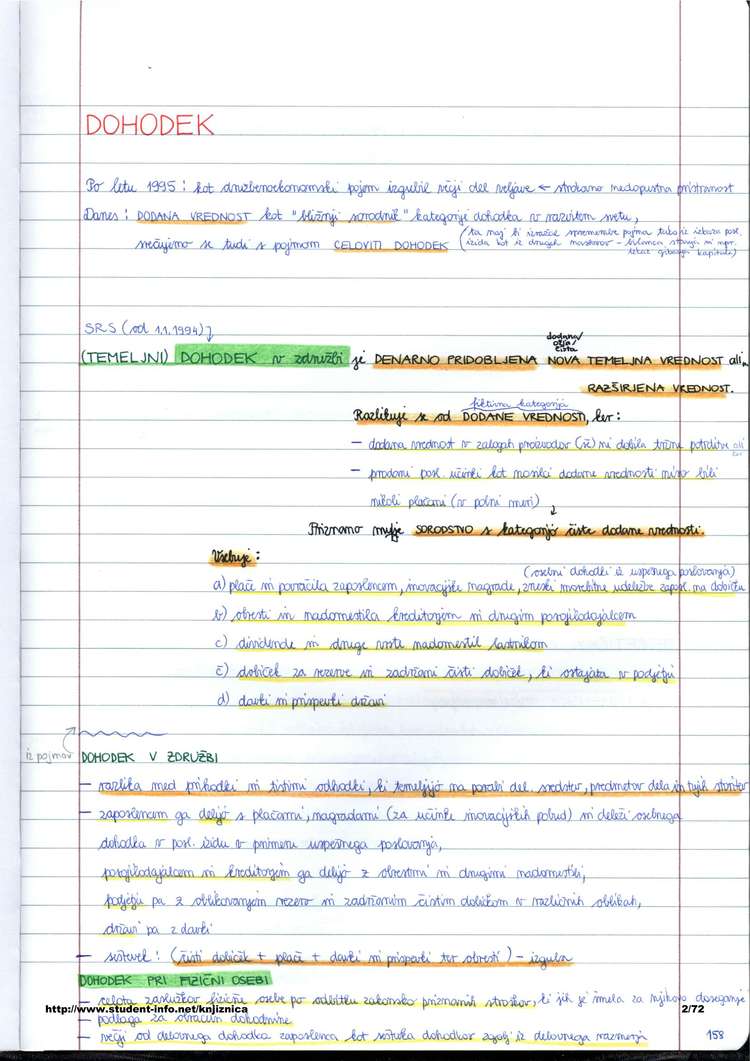 DOHODEK
Po letu 1995: kot družbenoekonomski pojem izgubil večji del veljave ← strokovno nedopustna pristranost
Danes: DODANA VREDNOST kot "bližnji sorodnik" kategorije dohodka v razvitem svetu,
srečujemo se tudi s pojmom CELOVITI DOHODEK (ta naj bi izražal spremembe pojma tako iz izkaza posl.
izida kot iz drugih naslovov - bilanca stanja in npr.
izkaz gibanja kapitala)
SRS (od 1.1.1994)
dodana/
ožja/
čista
(TEMELJNI) DOHODEK v združbi je DENARNO PRIDOBLJENA NOVA TEMELJNA VREDNOST ali
RAZŠIRJENA VREDNOST.
fiktivna kategorija
Razlikuje se od DODANE VREDNOSTI, ker:
- dodana vrednost v zalogah proizvodov (še) ni dobila tržne potrditve ali
- prodani posl. učinki kot nosilci dodane vrednosti niso bili
nikoli plačani (v polni meri)
Priznamo SORODSTVO s kategorijo čiste dodane vrednosti.
Vsebuje:
(osebni dohodki iz uspešnega poslovanja)
a) plače in povračila zaposlencem, inovacijske nagrade, zneski morebitne udeležbe zaposl. na dobičku
b) obresti in nadomestila kreditorjem in drugim posojilodajalcem
c) dividende in druge vrste nadomestil lastnikom
č) dobiček za rezerve in zadržani čisti dobiček, ki ostajata v podjetju
d) davki in prispevki državi
iz pojmov DOHODEK V ZDRUŽBI
- razlika med prihodki in tistimi odhodki, ki temeljijo na porabi del. sredstev, predmetov dela in tujih storitev
- zaposlencem ga delijo s plačami, nagradami (za učinke inovacijskih pobud) in deleži osebnega
dohodka v posl. izidu v primeru uspešnega poslovanja,
posojilodajalcem in kreditorjem ga delijo z obrestmi in drugimi nadomestili,
podjetju pa z oblikovanjem rezerv in zadržanim čistim dobičkom v različnih oblikah,
državi pa z davki
- seštevek: (čisti dobiček + plače + davki in prispevki ter obresti) - izguba
DOHODEK PRI FIZIČNI OSEBI
- celota zaslužkov fizične osebe po odbitku zakonsko priznanih stroškov, ki jih je imela za njihovo doseganje
http://www.student-info.net/knjiznica 2/72
- podlaga za obračun dohodnine
- večji od delovnega dohodka zaposlenca kot seštevka dohodkov zgolj iz delovnega razmerja
158